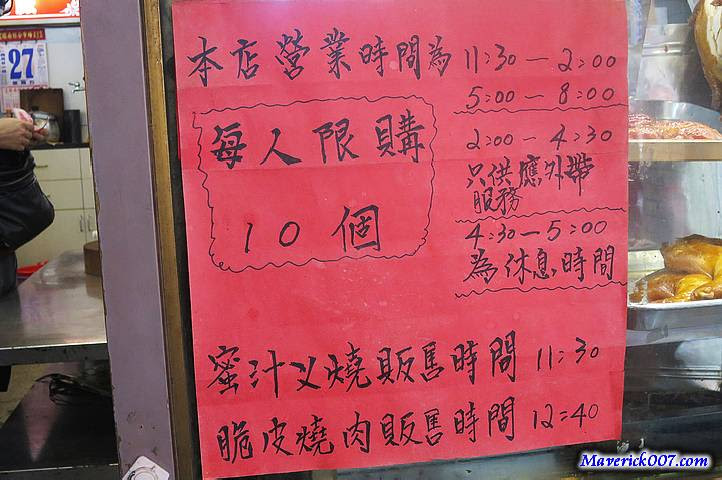 27
本店營業時間為 11:30 — 2:00
5:00 — 8:00
2:00 — 4:30
只供應外帶
服務
4:30 — 5:00
為休息時間
每人限購
10個
蜜汁乂燒販售時間 11:30
脆皮燒肉販售時間 12:40
Maverick007.com